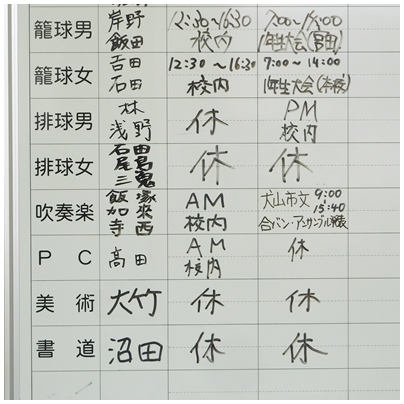 籠球男 岸野 12:30〜16:30 7:00〜17:00
飯田 校内 1年生大会
籠球女 吉田 12:30〜16:30 7:00〜14:00
石田 校内 1年生大会
排球男 林 休 PM
浅野 校内
排球女 石田 休 休
尾島
三鬼
吹奏楽 飯塚 AM 犬山市文 9:00
加来 校内 15:40
寺西 合バン・アンサンブル発表
PC 高田 AM 休
校内
美術 大竹 休 休
書道 沼田 休 休